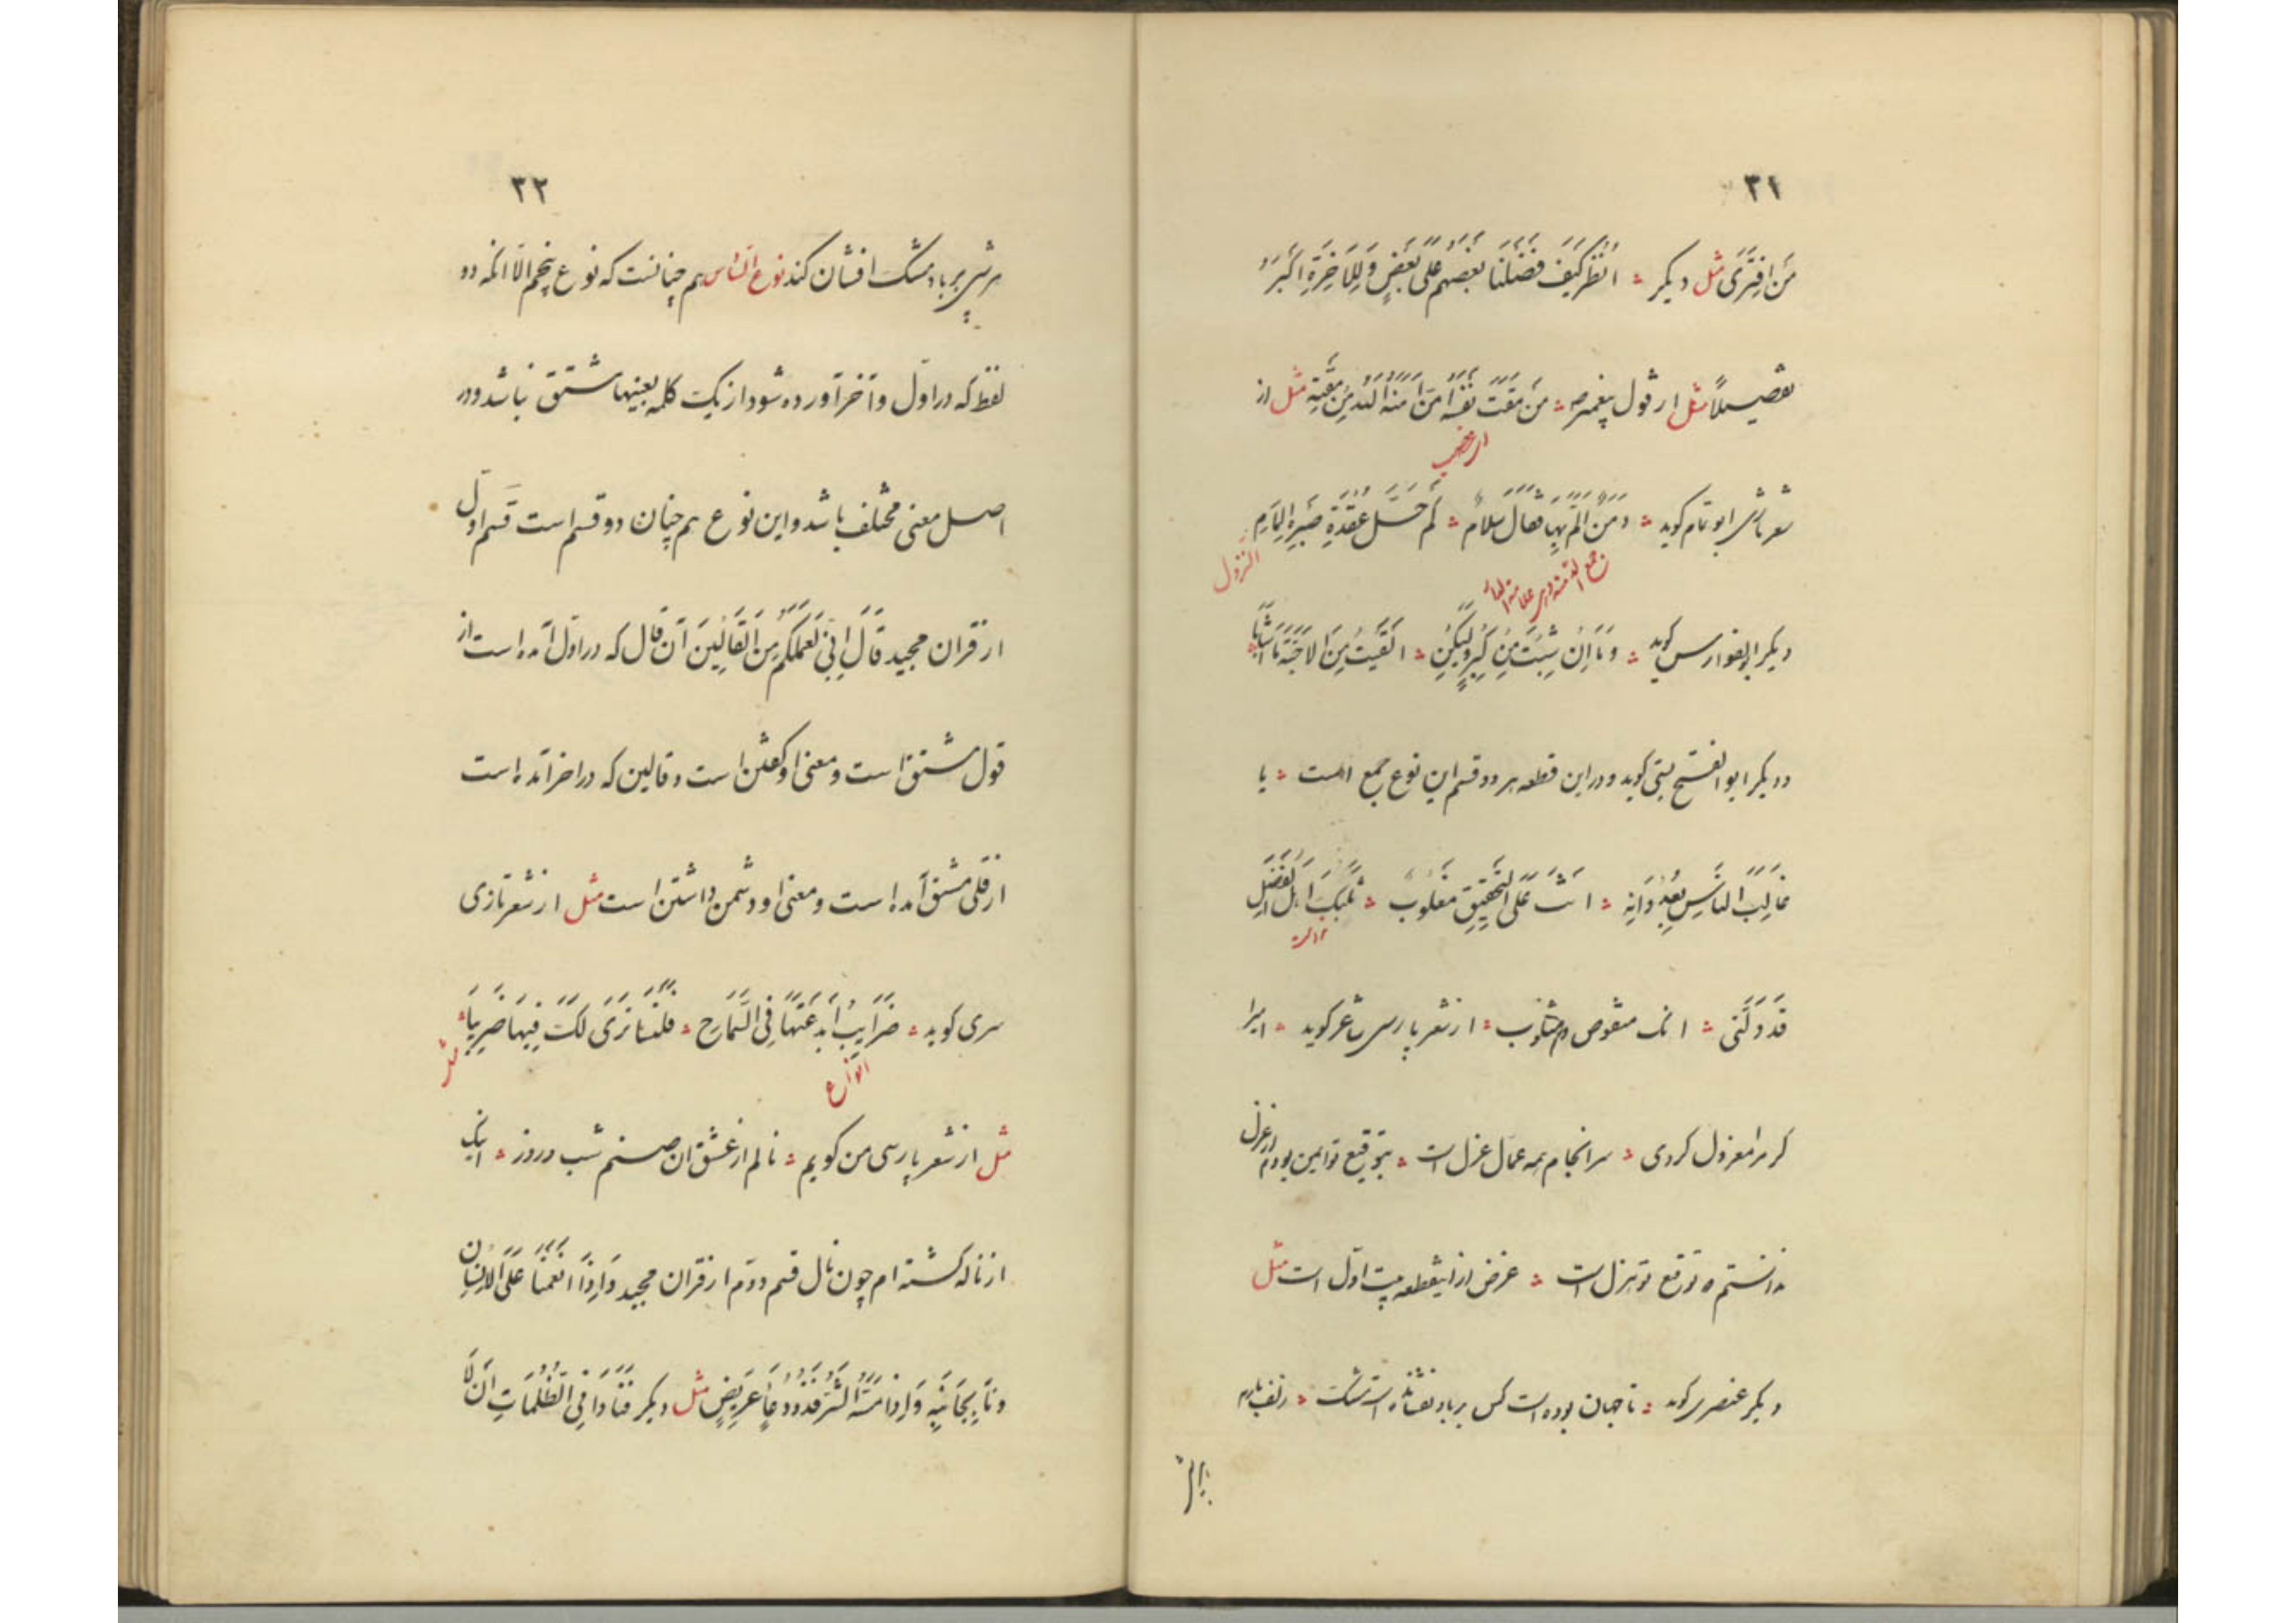 ۳۱
مَن افتَرَی مثل دیکر ؞ انظُر کَیفَ فَضَّلنَا بَعضَهُم عَلَی بَعضٍ وَلِلآخِرَةِ اکبَرُ
تفصیلاً مثل از قول پیغمبر ص ؞ مَن مَقَتَ نَفسَه اَمَنَه الله مِن مَقتِه مثل از
از غضب
شعر تازی ابو تمام کوید ؞ وَمَن بِها فقال سلام ؞ کم حَلّ عُقدَةِ صَبرِهِ الالمام
النزول
دیکر ابوالفوارس کوید ؞ وَمَا اِن شِبتُ مِن کِبَرٍ وَلکِن ؞ لَقیتُ مِنَ الاَحِبّةِ مَا اَشَابَا
ودیکر ابو الفتح بستی کوید ودر این قطعه هر دو قسم این نوع جمع است ؞ یا
غَالِبَ النَّاسِ بِعُدوَانِهِ ؞ انتَ عَلَی التَحقِیقِ مَغلُوب ؞
قَد دَلَّنی ؞ انک منقوص ومثلوب ؞ از شعر پارسی شاعر کوید ؞ امیرا
کر مرا معزول کردی ؞ سرانجام همه عمال عزل است ؞ بتوقیع تو ایمن بودم از عزل
ندانستم که توقیع تو هزل است ؞ غرض از اینقطعه بیت اول است مثل
دیکر عنصری کوید ؞ تا جهان بوده است کس بر باد نفشانده است مشک ؞ زلف یارم
۳۲
هر شبی بر باد مشک افشان کند نوع السّادس هم چنانست که نوع پنجم الّا انکه دو
لفظ که در اوّل و آخر آورده شود از یک کلمه بعینها مشتق نباشد ودر
اصل معنی مختلف باشد و این نوع هم چنان دو قسم است قسم اوّل
از قران مجید قَالَ اِنِّی لِعَمَلِکُم مِنَ القَالِینَ آن قال که در اوّل آمده است از
قول مشتق است ومعنی او کفتن است وقالین که در اخر آمده است
از قلی مشتق آمده است ومعنی او دشمن داشتن است مثل از شعر تازی
سری کوید ؞ ضَرَایِبُ اَبدَعتَهَا فِی السَّمَاحِ ؞ فَلَسنَا نَرَی لَکَ فِیهَا ضَرِیبَا ؞
انواع
مثل
مثل از شعر پارسی من کویم ؞ نالم از عشق ان صنم شب وروز ؞ اینک
از ناله کشته ام چون نال قسم دوّم از قران مجید وَاِذَا اَنعَمنَا عَلَی الاِنسَانِ
وَنَا بِجَانِبِه وَاِذَا مَسَّهُ الشَّرُّ فَذُو دُعَاءٍ عَرِیضٍ مثل دیکر فَنَادَی فِی الظُّلُمَاتِ اَن لَا